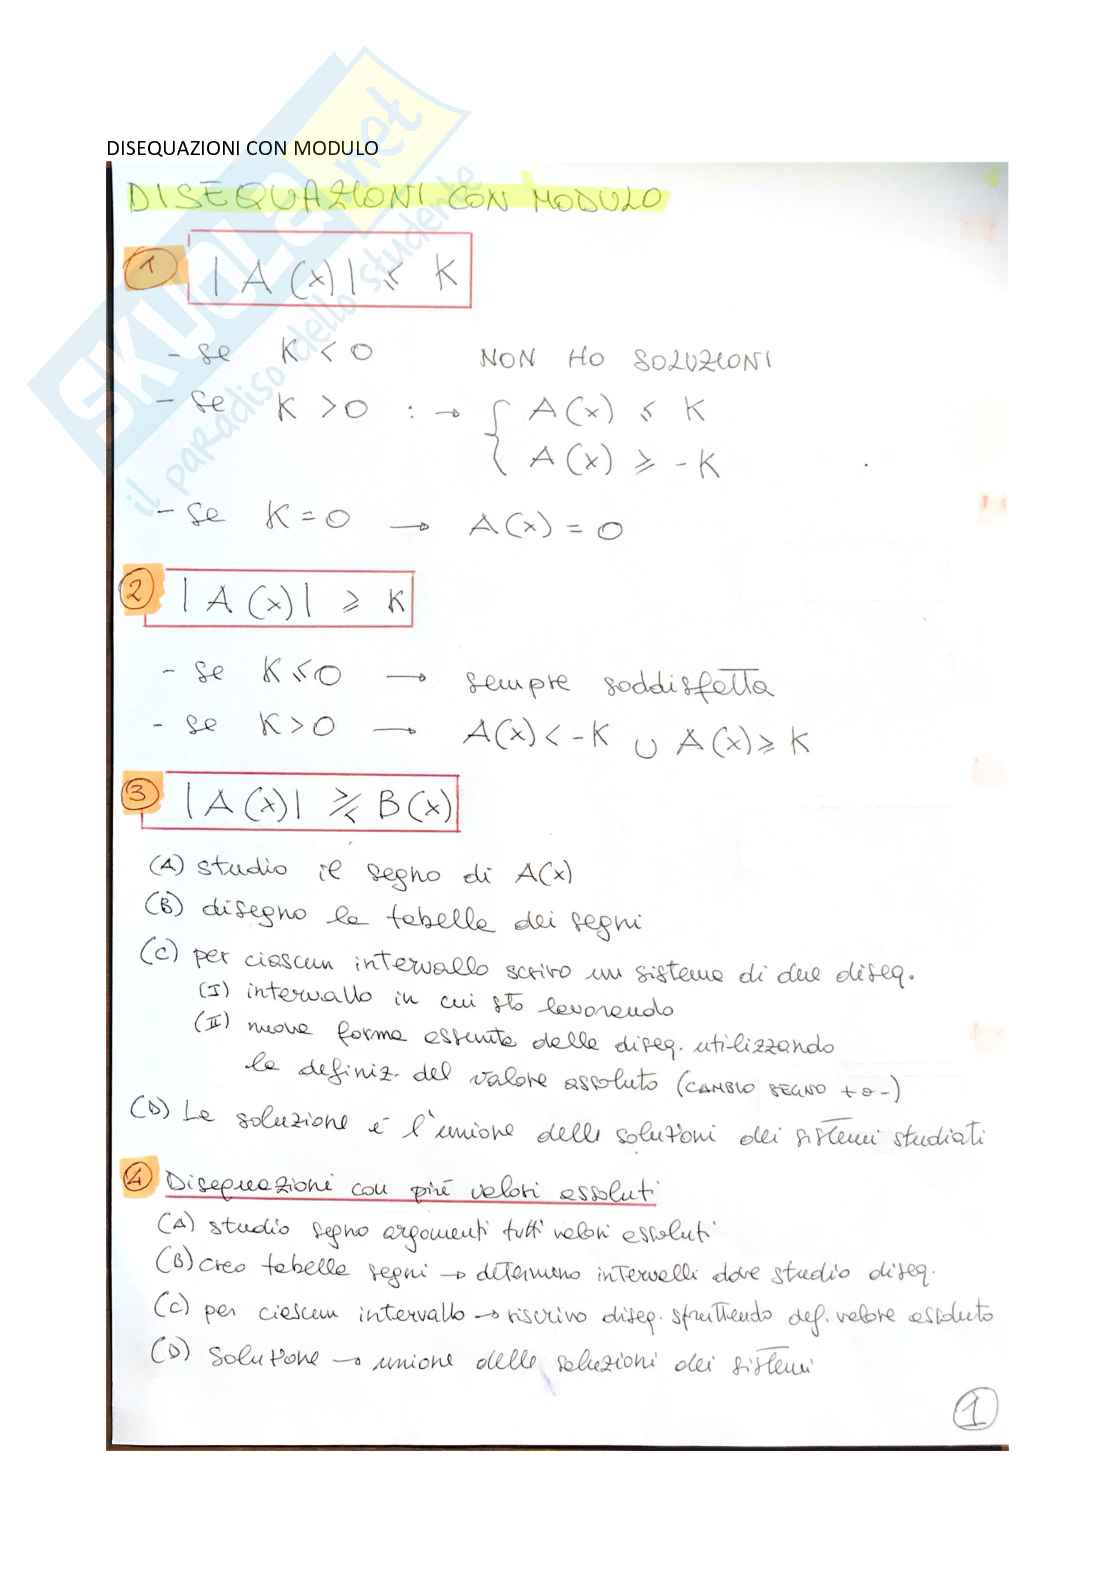 DISEQUAZIONI CON MODULO
DISEQUAZIONI CON MODULO
1 |A(x)| ⩽ K
- se K < 0 NON HO SOLUZIONI
- se K > 0 : → { A(x) ⩽ K
A(x) ⩾ -K
- se K = 0 → A(x) = 0
2 |A(x)| ⩾ K
- se K ⩽ 0 → sempre soddisfatta
- se K > 0 → A(x) < -K ∪ A(x) ⩾ K
3 |A(x)| ⪌ B(x)
(A) studio il segno di A(x)
(B) disegno la tabella dei segni
(C) per ciascun intervallo scrivo un sistema di due diseq.
(I) intervallo in cui sto lavorando
(II) nuova forma assunta dalla diseq. utilizzando
la definiz. del valore assoluto (CAMBIO SEGNO + o -)
(D) La soluzione è l'unione delle soluzioni dei sistemi studiati
4 Disequazioni con più valori assoluti
(A) studio segno argomenti tutti valori assoluti
(B) creo tabella segni → determino intervalli dove studio diseq.
(C) per ciascun intervallo → riscrivo diseq. sfruttando def. valore assoluto
(D) soluzione → unione delle soluzioni dei sistemi
1
SKUOLA.net
il paradiso dello studente